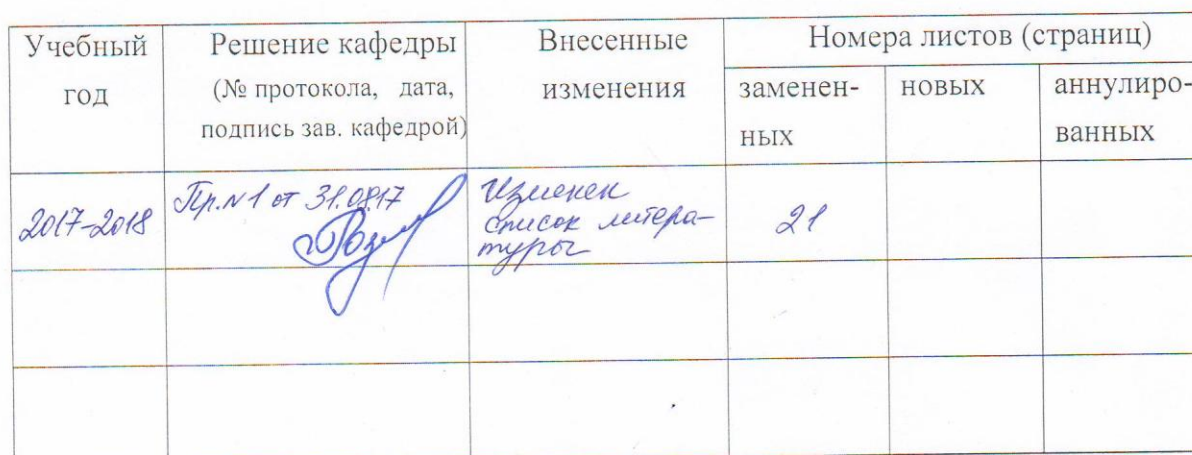 Учебный год
Решение кафедры
(№ протокола, дата,
подпись зав. кафедрой)
Внесенные
изменения
Номера листов (страниц)
заменен-
ных
новых
аннулиро-
ванных
2017-2018
Пр.№1 от 31.0817
Изменен
список литера-
туры
21